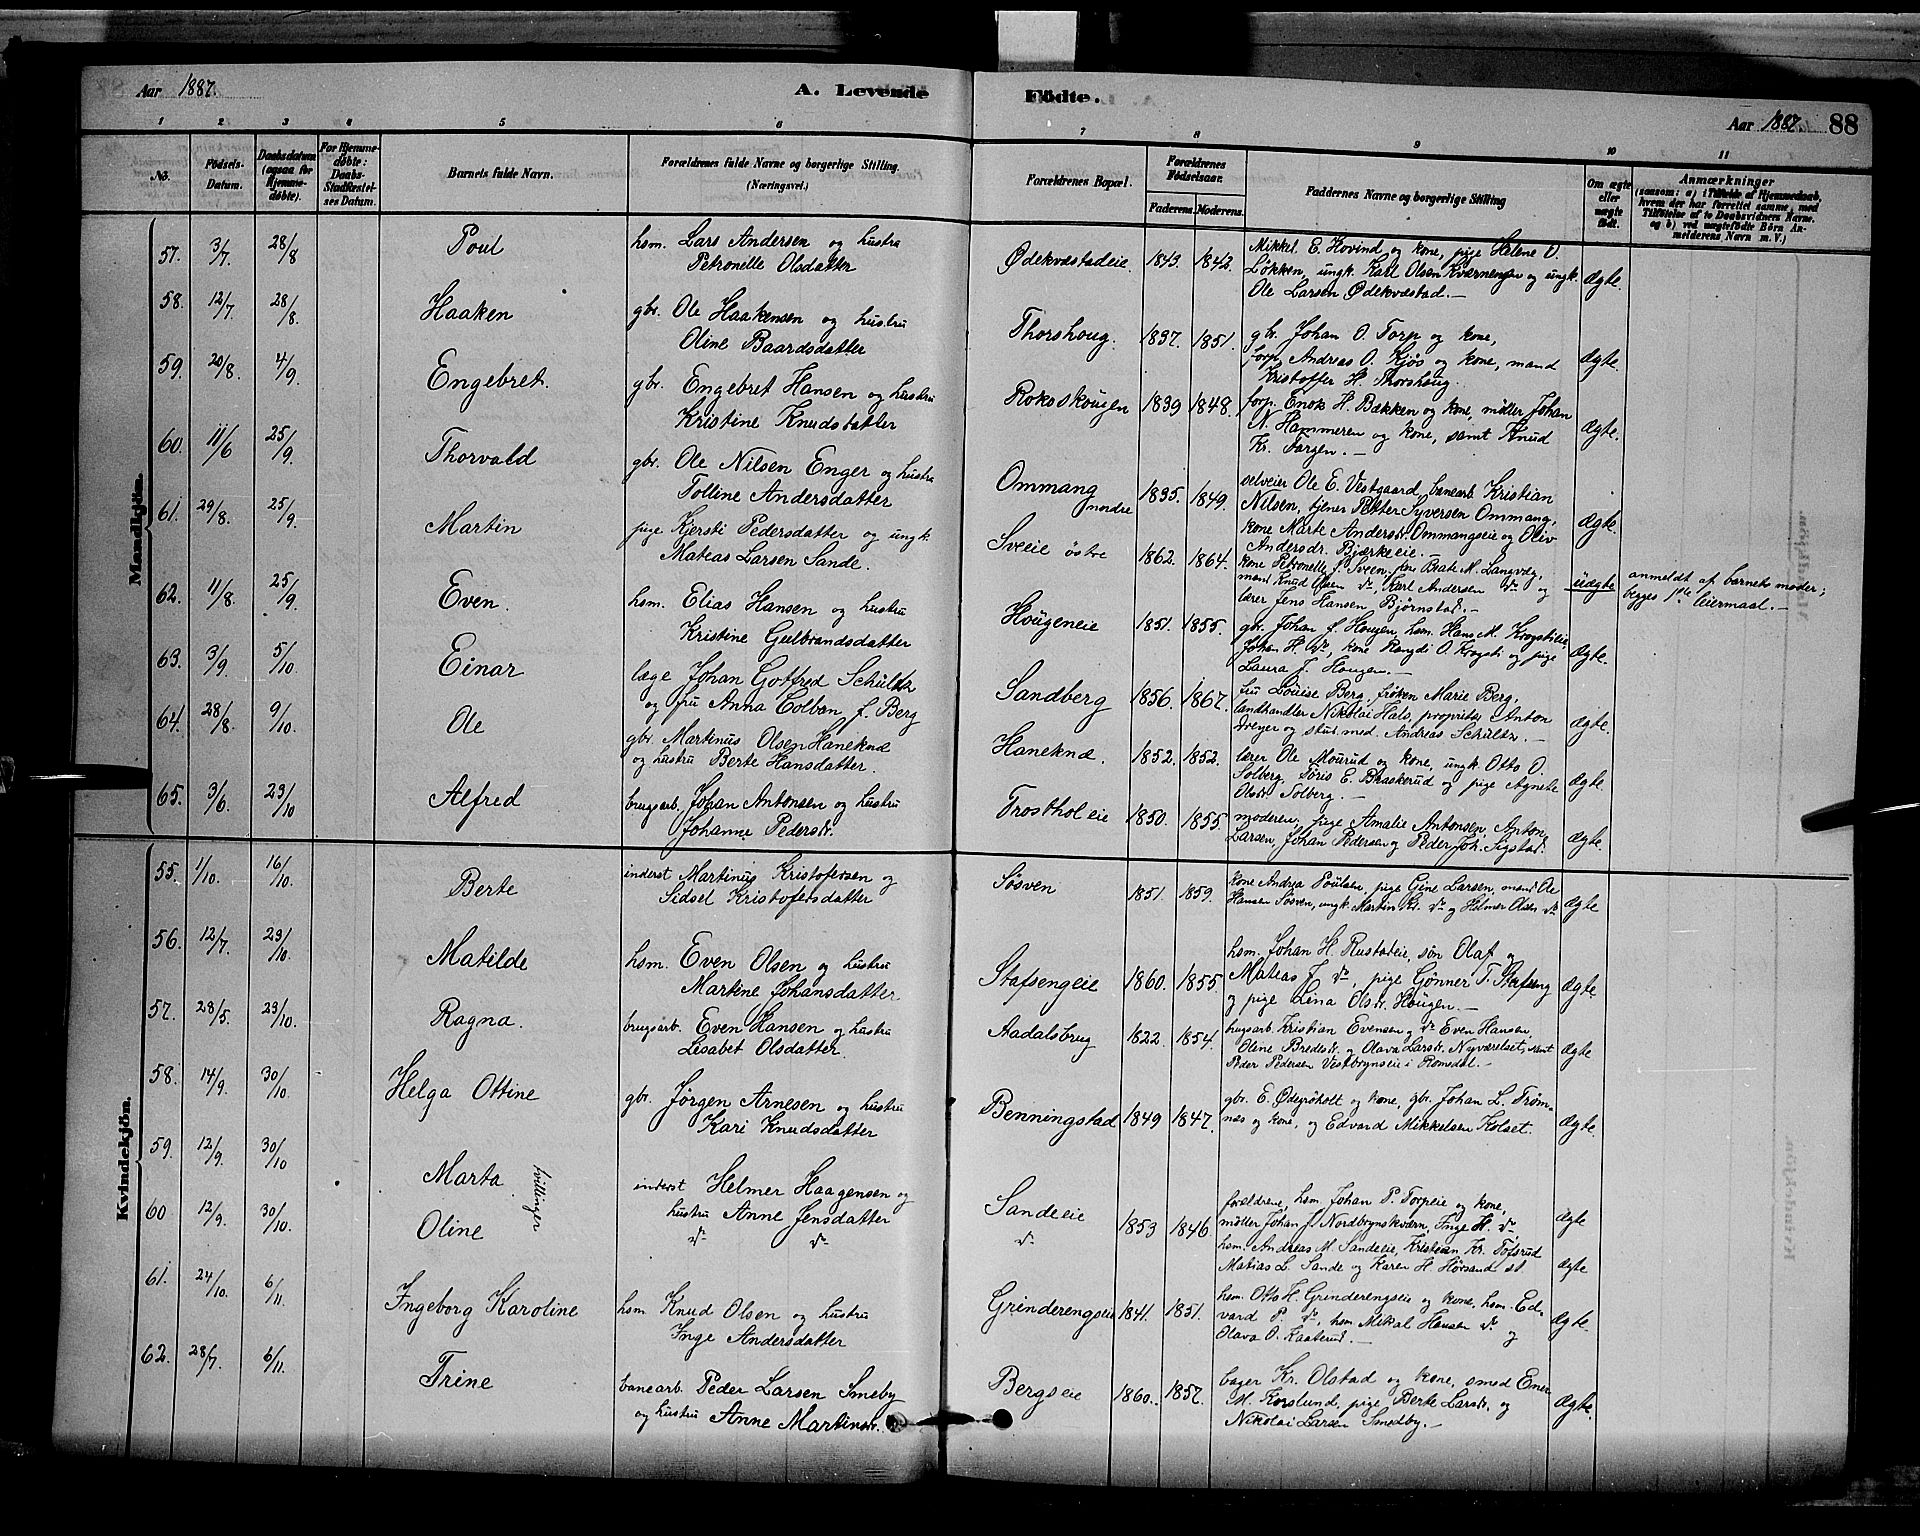 Aar 1887.
A. Levende
Födte.
Aar 1887. 88
1 2 3 4 5 6 7 8 9 10 11
No. Födsels-Datum. Daabsdatum (ogsaa for Hjemmedöbte). For Hjemmedöbte: Daabs-Stadfæstelses Datum. Barnets fulde Navn. Forældrenes fulde Navne og borgerlige Stilling. (Næringsvei.) Forældrenes Bopæl. Forældrenes Födselsaar. Faderens. Moderens. Faddernes Navne og borgerlige Stilling Om ægte eller uægte födt. Anmærkninger (saasom: a) i Tilfælde af Hjemmedaab, hvem der har forrettet samme, med Tilföielse af to Daabsvidners Navne. og b) ved uægtefödte Börn Anmelderens Navn m. V.)
Mandkjön.
57. 3/7. 28/8 Poul hsm. Lars Andersen og hustru
Petronelle Olsdatter
Ødekvæstadeie. 1843. 1842. Mikkel E. Hovind og kone, pige Helene O.
Løkken, ungk. Karl Olsen Kværnengen og ungk.
Ole Larsen Ødekvæstad. — Ægte.
58. 12/7. 28/8. Haaken gbr. Ole Haakensen og hustru
Oline Baardsdatter
Thorshoug. 1837. 1851. gbr. Johan O. Torp og kone,
forp. Andreas O. Kjøs og kone, mand
Kristoffer H. Thorshoug. Ægte.
59. 20/8. 4/9. Engebret. gbr. Engebret Hansen og hustru
Kristine Knudsdatter
Rokoskougen 1839 1848. forp. Enok H. Bækken og kone, møller Johan
N. Hammeren og kone, samt Knud
Kr. Fargen. — Ægte.
60. 11/6 25/9. Thorvald gbr. Ole Nilsen Enger og hustru
Tolline Andersdatter
Ommang nordre 1835. 1849. selveier Ole E. Vestgaard, banearb. Kristian
Nilsen, tjener Petter Syversen Ommang,
kone Marte Andersdr. Ommangseie og Oliv
Andersdr. Bjærkeeie. — Ægte.
61. 29/8. 25/9. Martin pige Kjersti Pedersdatter og ungk.
Mateas Larsen Sande.
Sveie østre 1862. 1864. kone Petronelle J. Sveen, pige Beate M. Langvég,
mand Knud Olsen do, Karl Andersen do og
lærer Jens Hansen, Bjørnstad. — uægte anmeldt af barnets moder;
begges 1ste leiermaal. —
62. 11/8. 25/9. Even. hsm. Elias Hansen og hustru
Kristine Gulbrandsdatter
Hougeneie 1851. 1855. gbr. Johan J. Hougen, hsm. Hans M. Krogstieie,
Johan H. do, kone Rangdi O. Krogsti og pige
Laura J. Hougen. — Ægte.
63. 3/9. 5/10. Einar læge Johan Gotfred Schultz
og fru Anna Colban f. Berg
Sandberg 1856. 1867. fru Louise Berg, frøken Marie Berg,
landhandler Nikolai Hals, proprietær Anton
Dreyer og stud. med. Andreas Schultz. — ægte.
64. 28/8. 9/10. Ole gbr. Martinus Olsen Haneknæ
og hustru Berte Hansdatter.
Haneknæ. 1852. 1852. lærer Ole Mourud og kone, ungk. Otto O.
Solberg, Søris E. Braskerud og pige Agnete
Olsdr. Solberg. — Ægte.
65. 3/6. 23/10 Alfred brugsarb. Johan Antonsen og hustru
Johanne Pedersdr.
Frostholeie 1850. 1855. moderen, pige Amalie Antonsen, Anton
Larsen, Johan Pedersen og Peder Joh. Sigstad. Ægte.
Kvindekjön.
55 1/10. 16/10. Berte inderst Martinus Kristofersen og
Sidsel Kristofersdatter
Søsven 1851. 1859. kone Andrea Poulsen, pige Gine Larsen, mand Ole
Hansen Søsven, ungk. Martin Kr. do og Helmer Olsen do Ægte
56. 12/7. 23/10. Matilde hsm. Even Olsen og hustru
Martine Johansdatter
Stafsengeie 1860. 1855. hsm. Johan H. Rustadeie, søn Olaf og
Mateas J. do, pige Gønner T. Stafseng
og pige Lina Olsdr. Hougen. — Ægte
57. 28/5. 23/10. Ragna. brugsarb. Even Hansen og hustru
Lisabet Olsdatter.
Aadalsbrug 1822. 1854. brugsarb. Kristian Evensen, do Even Hansen,
Oline Bredesdr. og Olava Larsdr. Nyværelset, samt
Peder Pedersen Vestbrynseie i Romedal. — Ægte
58. 14/9. 30/10. Helga Ottine gbr. Jørgen Arnesen og hustru
Kari Knudsdatter
Benningstad 1849 1847. gbr. E. Ødegröholt og kone, gbr. Johan L. Trømnæs
og kone, og Edvard Mikkelsen Kolset. Ægte.
59. 12/9. 30/10 Marta tvillinger inderst Helmer Haagensen og
hustru Anne Jensdatter
Sandeeie 1853 1846. forældrene, hsm. Johan P. Torpeie og kone,
møller Johan J. Nordbrynskværn, Inge H. do Ægte
60 12/9. 30/10. Oline do do
do hsm. Andreas M. Sandeeie, Kristian Kr. Tofsrud
Matias L. Sande og Karen H. Hørsand st. Ægte
61. 24/10. 6/11. Ingeborg Karoline hsm. Knud Olsen og hustru
Inge Andersdatter
Grinderengseie 1841. 1851. hsm. Otto H. Grinderengseie og kone, hsm. Edvard
P. do, hsm. Mikal Hansen do og
Olava O. Kaaterud. — Ægte.
62. 28/7. 6/11. Trine banearb. Peder Larsen Smeby
og hustru Anne Martinsdr.
Bergseie 1860. 1857. bager Kr. Olstad og kone, smed Einer
M. Korslund, pige Berte Larsdr. og
Nikolai Larsen Smedby. — Ægte.